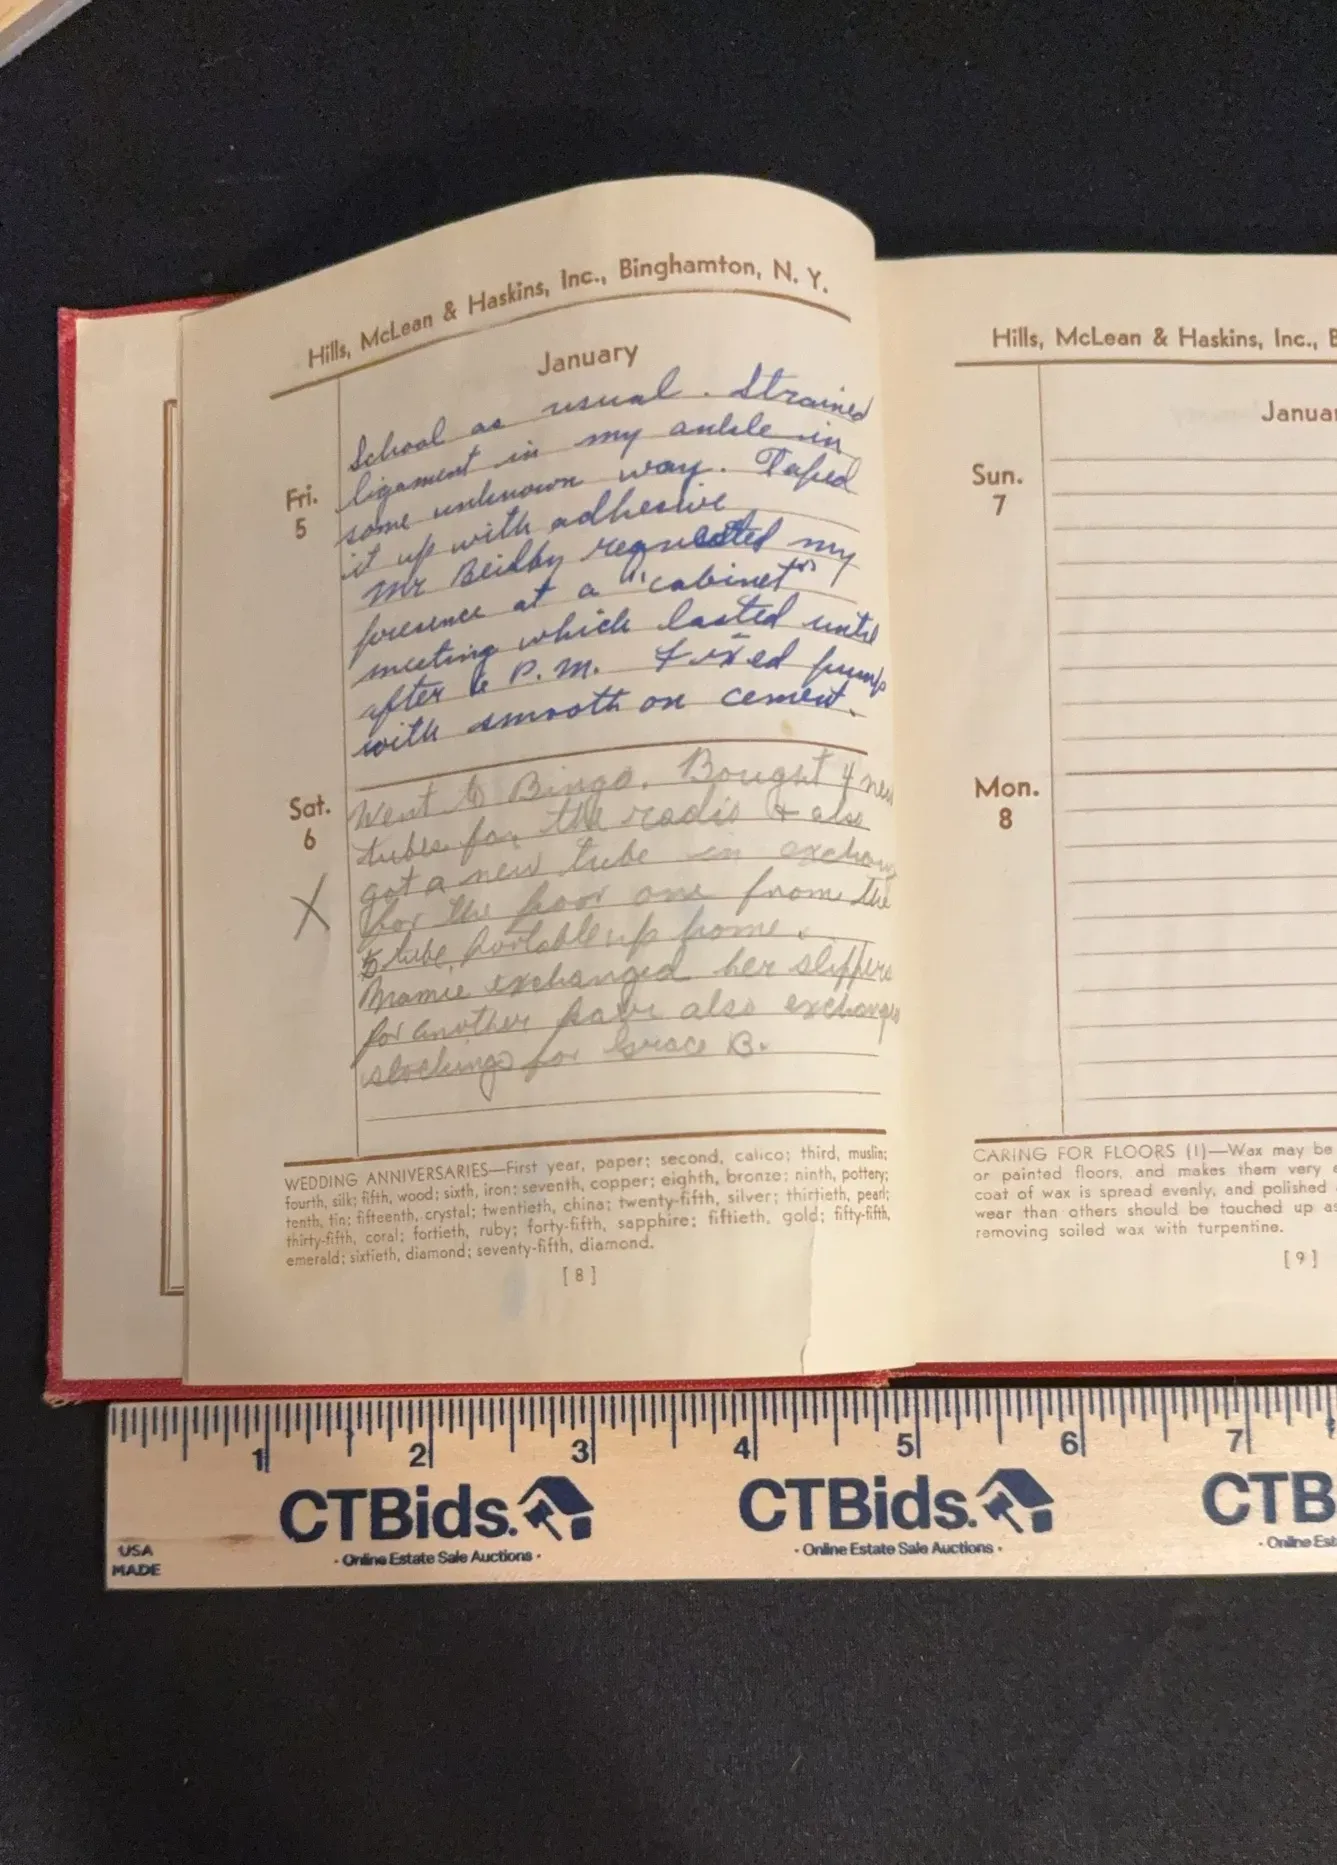 Hills, McLean & Haskins, Inc., Binghamton, N. Y.
January
Fri.
5
School as usual. Strained
ligament in my ankle in
some unknown way. Taped
it up with adhesive
Mr Beilby requested my
presence at a "cabinet"
meeting which lasted until
after 6 P.M. Fixed pump
with smooth on cement.
Sat.
6
X
Went to Bingo. Bought 4 new
tubes for the radio + also
got a new tube in exchang
for the poor one from the
5 tube portable up home.
Mamie exchanged her slippers
for another pair also exchanged
stockings for Grace B.
WEDDING ANNIVERSARIES—First year, paper; second, calico; third, muslin;
fourth, silk; fifth, wood; sixth, iron; seventh, copper; eighth, bronze; ninth, pottery;
tenth, tin; fifteenth, crystal; twentieth, china; twenty-fifth, silver; thirtieth, pearl;
thirty-fifth, coral; fortieth, ruby; forty-fifth, sapphire; fiftieth, gold; fifty-fifth,
emerald; sixtieth, diamond; seventy-fifth, diamond.
[ 8 ]
Hills, McLean & Haskins, Inc., B
Januar
Sun.
7
Mon.
8
CARING FOR FLOORS (1)—Wax may be
or painted floors, and makes them very
coat of wax is spread evenly, and polished
wear than others should be touched up as
removing soiled wax with turpentine.
[ 9 ]
1 2 3 4 5 6 7
CTBids. CTBids. CTB
· Online Estate Sale Auctions · · Online Estate Sale Auctions · · Online Est
USA
MADE